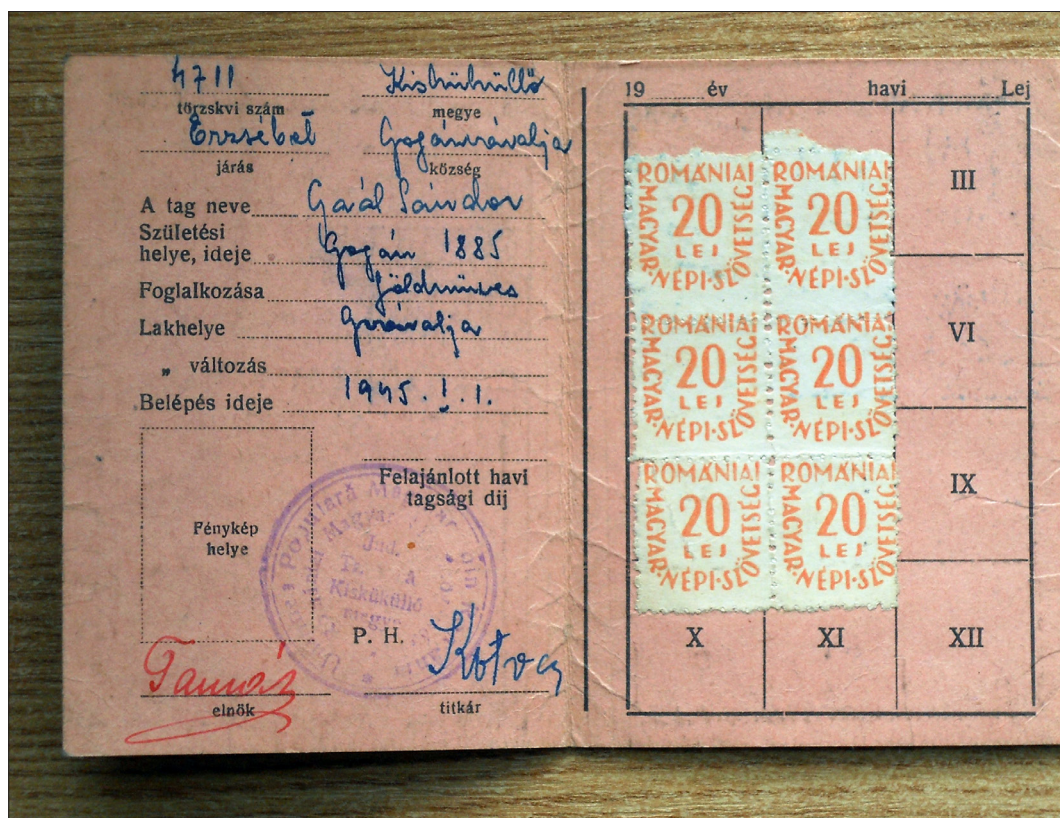 4711 Kisküküllő
törzskvi szám megye
Erzsébet Gogánváralja
járás község
A tag neve Gaál Sándor
Születési
helye, ideje Gogán 1885
Foglalkozása földműves
Lakhelye Gváralja
„ változás
Belépés ideje 1945. I. 1.
Felajánlott havi
tagsági dij
Fénykép
helye
P. H.
Tamás
elnök titkár
Populară
Kisküküllő
19 év havi Lej
ROMÁNIAI
MAGYAR·NÉPI·SZÖVETSÉG
20
LEJ
ROMÁNIAI
MAGYAR·NÉPI·SZÖVETSÉG
20
LEJ
III
ROMÁNIAI
MAGYAR·NÉPI·SZÖVETSÉG
20
LEJ
ROMÁNIAI
MAGYAR·NÉPI·SZÖVETSÉG
20
LEJ
VI
ROMÁNIAI
MAGYAR·NÉPI·SZÖVETSÉG
20
LEJ
ROMÁNIAI
MAGYAR·NÉPI·SZÖVETSÉG
20
LEJ
IX
X XI XII